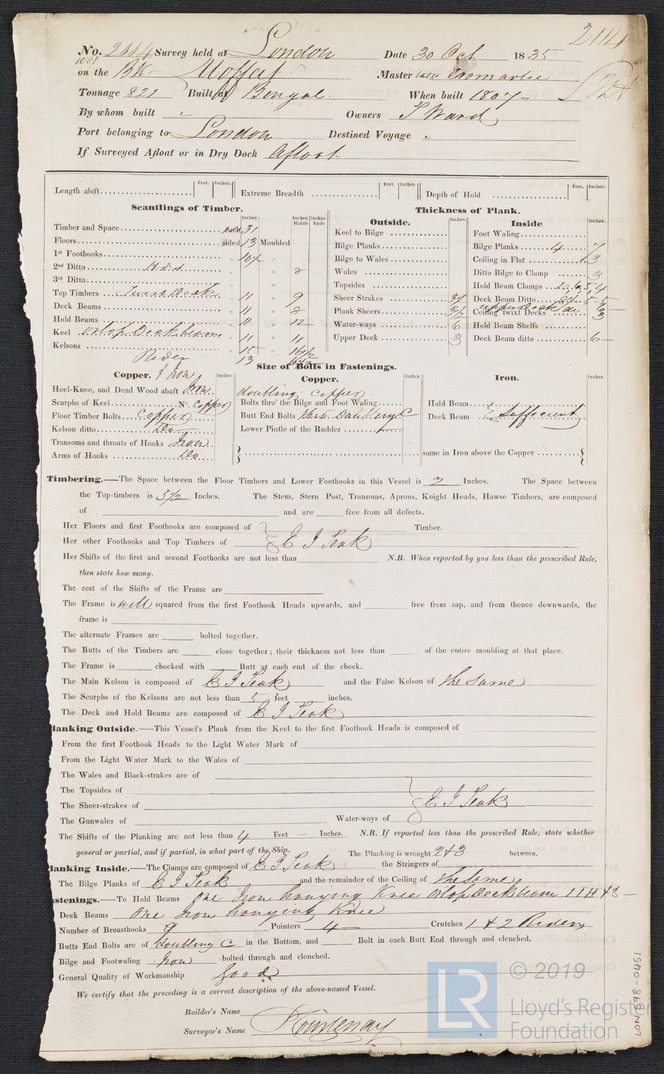 2114
No. 2114 Survey held at London Date 30 Oct 1835
on the Bk Moffat Master Cromartie
Tonnage 821 Built at Bengal When built 1807
By whom built Owners T Ward
Port belonging to London Destined Voyage
If Surveyed Afloat or in Dry Dock Afloat
Length aloft Feet. Inches. Extreme Breadth Feet. Inches. Depth of Hold Feet. Inches.
Scantlings of Timber.
Inches. Inches. Middle Inches. Ends
Timber and Space each 31
Floors sided 13 Moulded
1st Foothooks
2nd Ditto 8
3rd Ditto
Top Timbers 11 9
Deck Beams 11 8
Hold Beams 11 12
Keel Orlop Deck beams 11 11
Kelsons 15
Rider 13
Thickness of Plank.
Outside. Inches.
Keel to Bilge
Bilge Planks
Bilge to Wales
Wales
Topsides
Sheer Strakes
Plank Sheers
Water-ways 6
Upper Deck 3
Inside. Inches.
Foot Waling
Bilge Planks 4 7
Ceiling in Flat 3
Ditto Bilge to Clamp 3
Hold Beam Clamps
Deck Beam Ditto
Ceiling twixt Decks 3
Hold Beam Shelfs
Deck Beam ditto 6
Size of Bolts in Fastenings.
Copper. Iron
Heel-Knee, and Dead Wood abaft Iron
Scarphs of Keel No. Copper
Floor Timber Bolts Copper
Kelson ditto Do
Transoms and throats of Hooks Iron
Arms of Hooks Do
Copper.
doubling Copper
Bolts thro' the Bilge and Foot Waling
Butt End Bolts
Lower Pintle of the Rudder
Iron.
Hold Beam
Deck Beam Sufficient
same in Iron above the Copper
Timbering.—The Space between the Floor Timbers and Lower Foothooks in this Vessel is 2 Inches. The Space between
the Top-timbers is 5½ Inches. The Stem, Stern Post, Transoms, Aprons, Knight Heads, Hawse Timbers, are composed
of and are free from all defects.
Her Floors and first Foothooks are composed of Timber.
Her other Foothooks and Top Timbers of E I Teak
Her Shifts of the first and second Foothooks are not less than N.B. When reported by you less than the prescribed Rule,
then state how many.
The rest of the Shifts of the Frame are
The Frame is well squared from the first Foothook Heads upwards, and free from sap, and from thence downwards, the
frame is
The alternate Frames are bolted together.
The Butts of the Timbers are close together; their thickness not less than of the entire moulding at that place.
The Frame is chocked with Butt at each end of the chock.
The Main Kelson is composed of E I Teak and the False Kelson of the same
The Scarphs of the Kelsons are not less than 5 feet inches.
The Deck and Hold Beams are composed of E I Teak
lanking Outside.—This Vessel's Plank from the Keel to the first Foothook Heads is composed of
From the first Foothook Heads to the Light Water Mark of
From the Light Water Mark to the Wales of
The Wales and Black-strakes are of
The Topsides of
The Sheer-strakes of E I Teak
The Gunwales of Water-ways of
The Shifts of the Planking are not less than 4 Feet Inches. N.B. If reported less than the prescribed Rule, state whether
general or partial, and if partial, in what part of the Ship. The Planking is wrought 2 & 3 between.
lanking Inside.—The Clamps are composed of E I Teak the Stringers of
The Bilge Planks of E I Teak and the remainder of the Ceiling of the same
astenings.—To Hold Beams One Iron hanging Knee Orlop Deck beam
Deck Beams One Iron hanging Knee
Number of Breasthooks 9 Pointers 4 Crutches 1 & 2 Riders
Butts End Bolts are of doubling C in the Bottom, and Bolt in each Butt End through and clenched.
Bilge and Footwaling Iron bolted through and clenched.
General Quality of Workmanship good
We certify that the preceding is a correct description of the above-named Vessel.
Builder's Name
Surveyor's Name Courtenay
LR © 2019
Lloyd's Register
Foundation
LON 598-0451